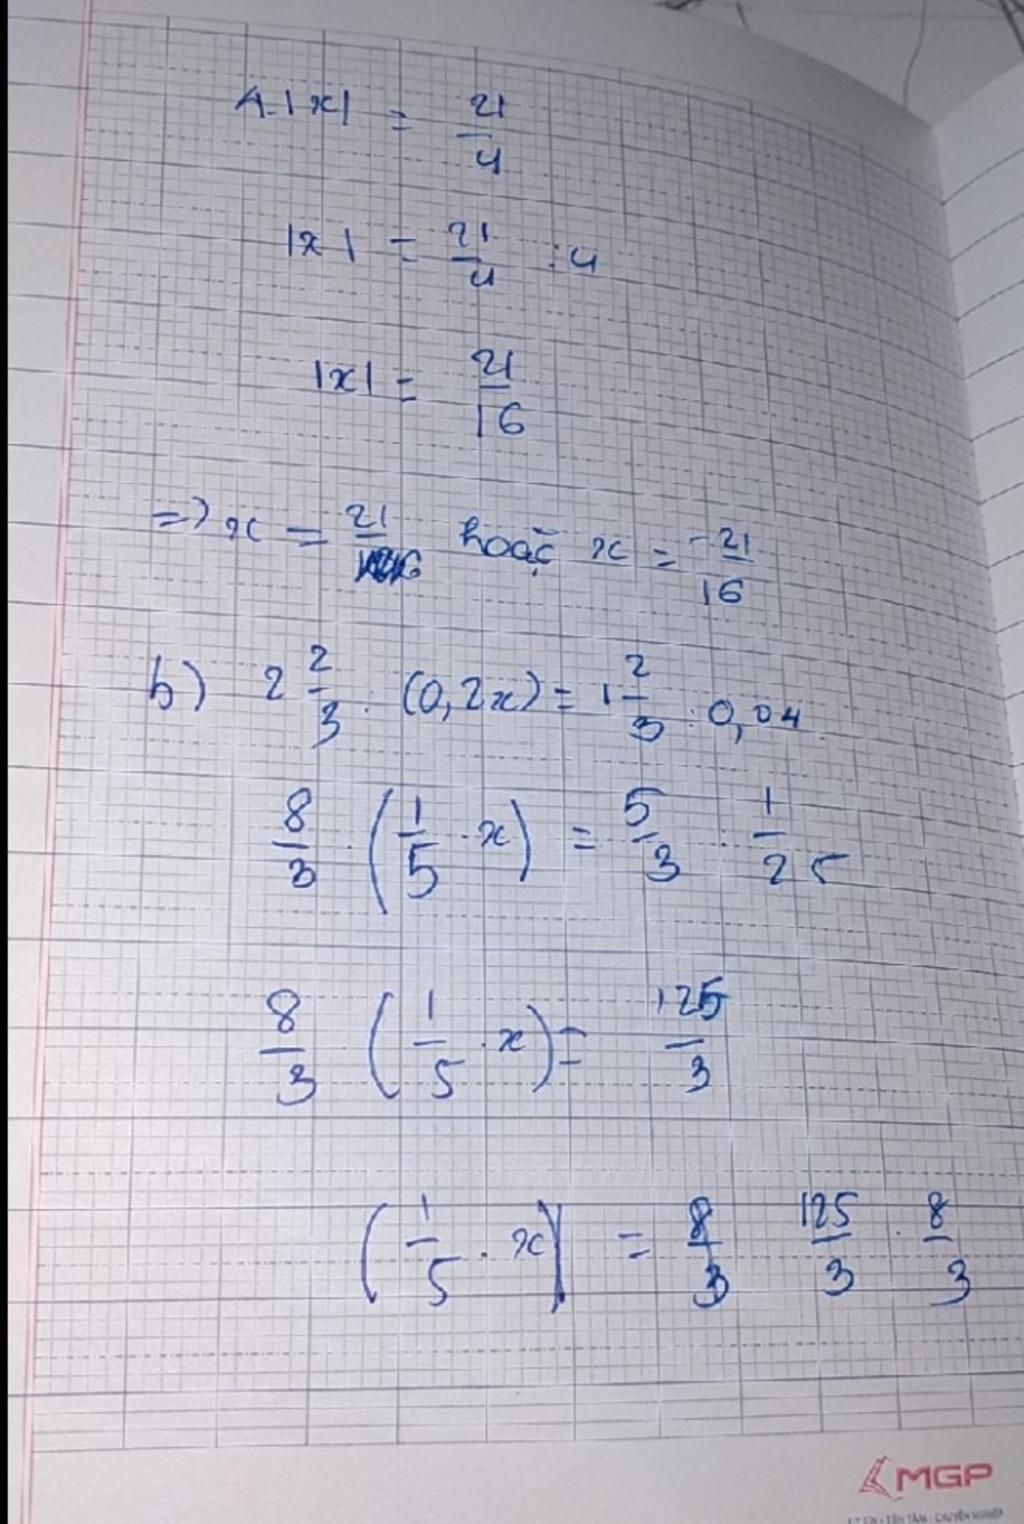 4.|x| = 21/4
|x| = 21/4 : 4
|x| = 21/16
=> x = 21/16 hoặc x = -21/16
b) 2 2/3 . (0,2x) = 1 2/3 : 0,04
8/3 . (1/5 . x) = 5/3 : 1/25
8/3 . (1/5 . x) = 125/3
(1/5 . x) = 8/3 125/3 . 8/3
MGP